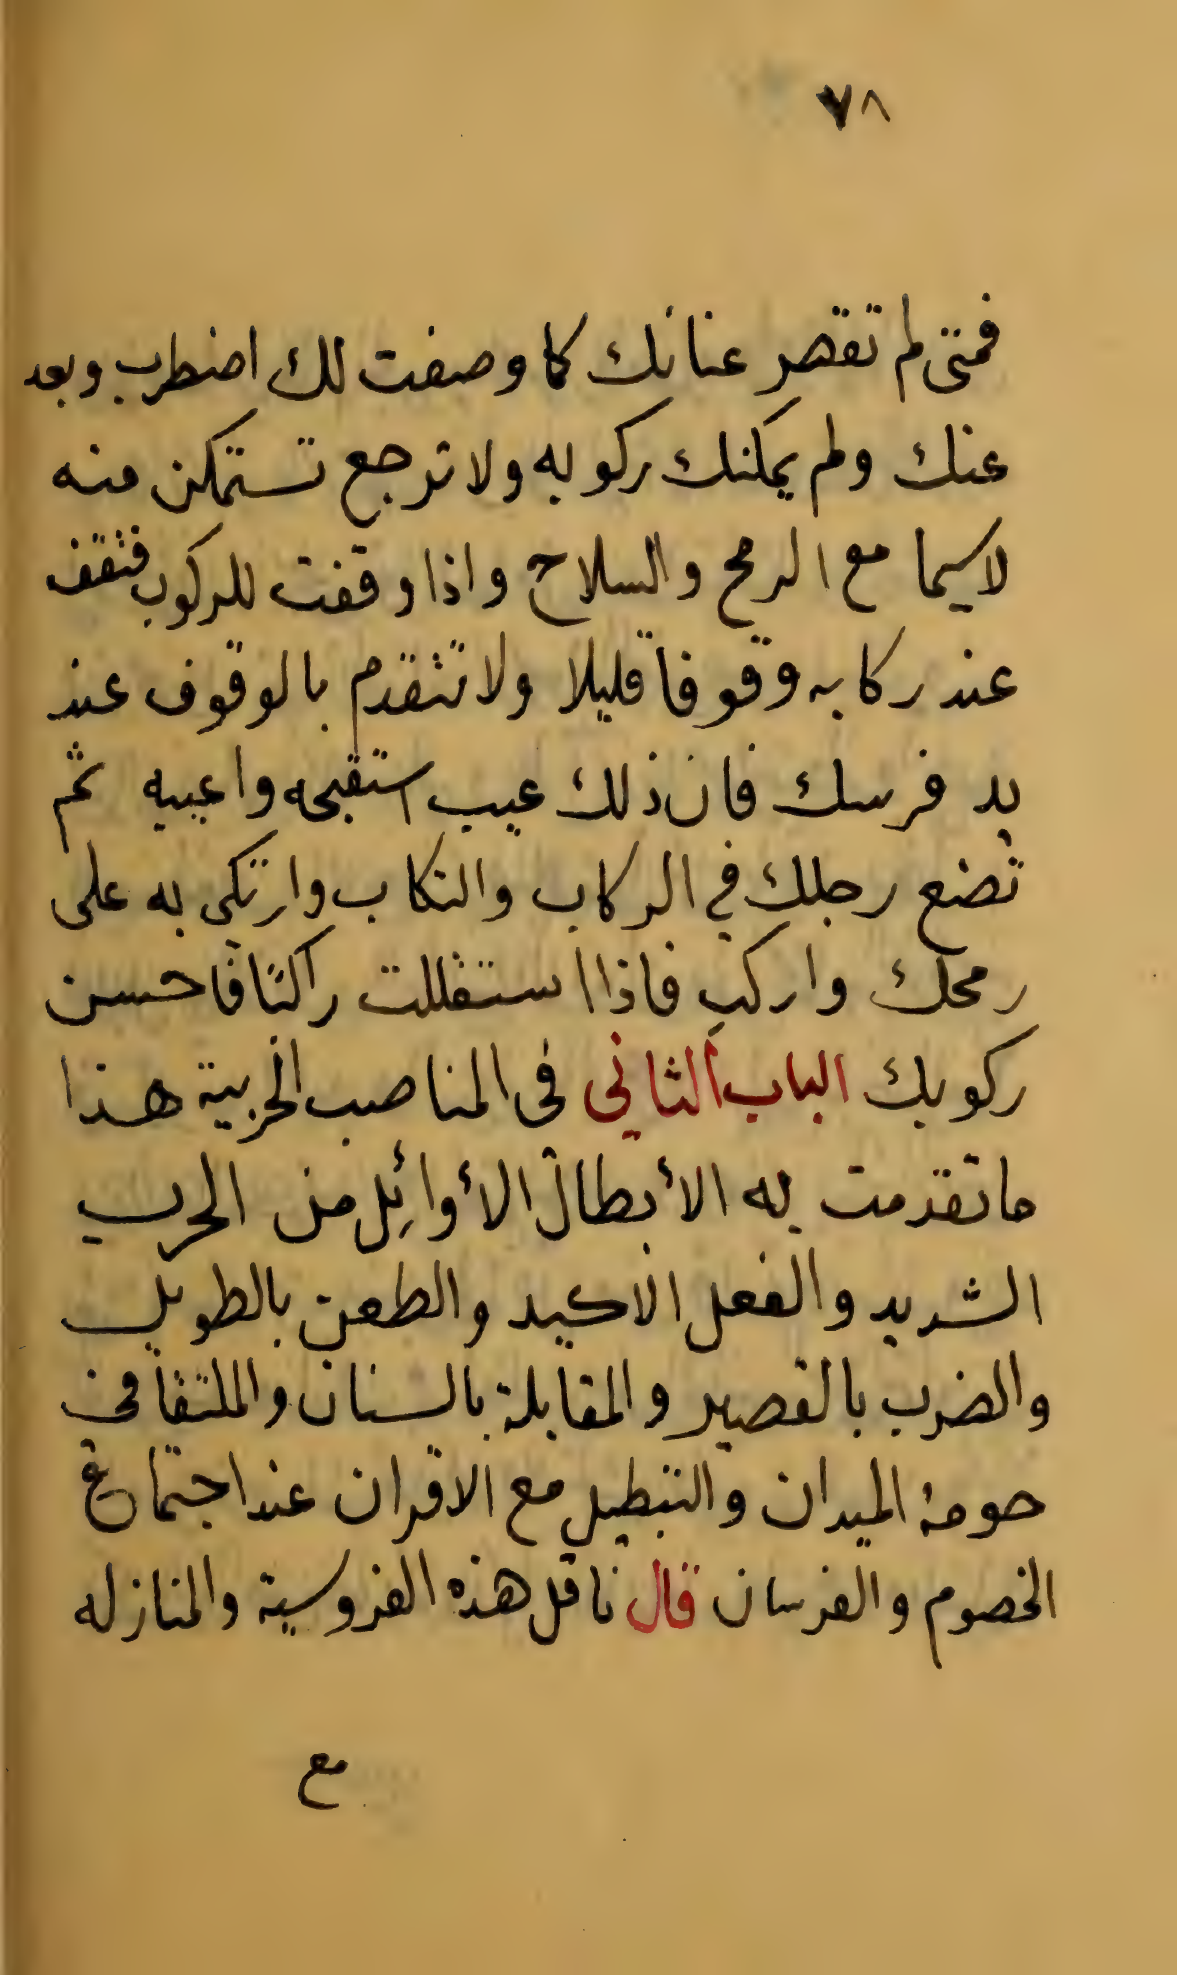 ٧٨
فمتى لم تقصر عنانك كما وصفت لك اضطرب وبعد
عنك ولم يمكنك ركوبه ولا ترجع تستمكن منه
لاسيما مع الرمح والسلاح واذا وقفت للركوب فتقف
عند ركابه وقوفا قليلا ولا تتقدم بالوقوف عند
يد فرسك فان ذلك عيب استقبحه واعيبه ثم
تضع رجلك في الركاب والتكاب وارتكى به على
رمحك واركب فاذا استقللت راكبًا فاحسن
ركوبك الباب الثاني فى المناصب الحربية هذا
ما تقدمت به الأبطال الأوائل من الحرب
الشديد والفعل الاكيد والطعن بالطويل
والضرب بالقصير والمقابلة بالسنان والملتقا فى
حومة الميدان والتبطيل مع الاقران عند اجتماع
الخصوم والفرسان قال ناقل هذه الفروسية والمنازله
مع